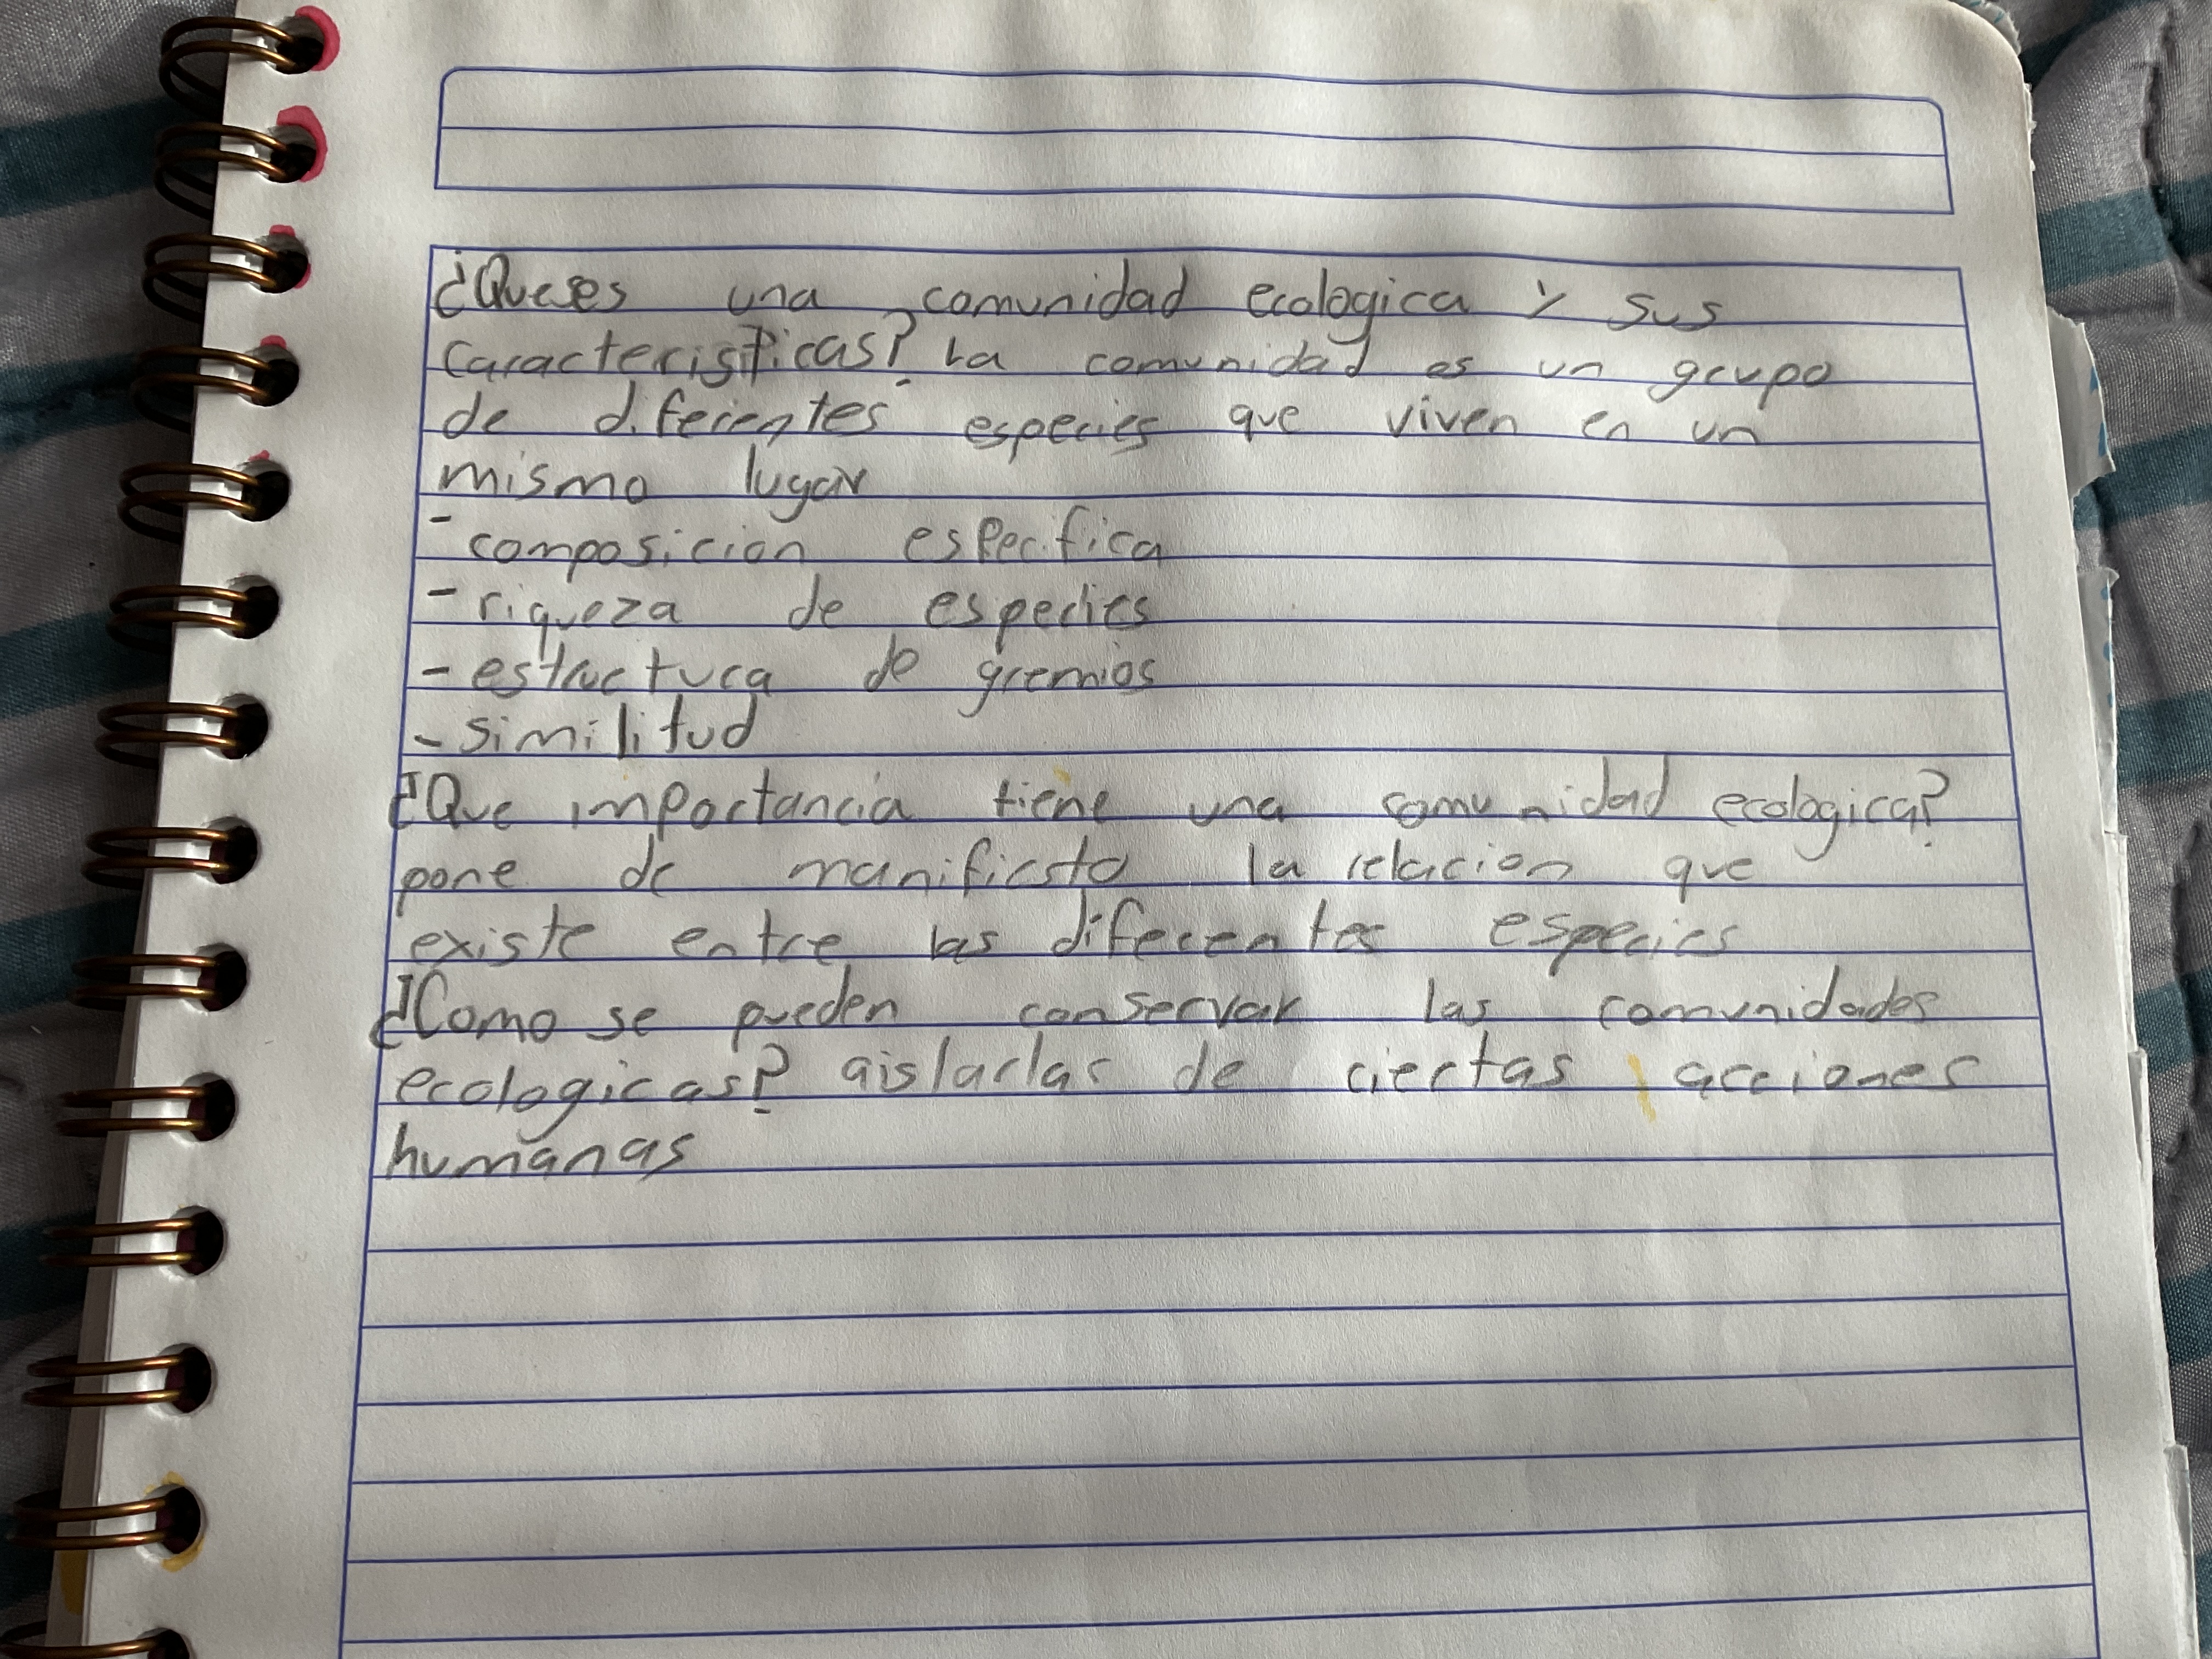 ¿Que es una comunidad ecologica y sus
caracteristicas? La comunidad es un grupo
de diferentes especies que viven en un
mismo lugar
- composicion especifica
- riqueza de especies
- estructura de gremios
- similitud
¿Que importancia tiene una comunidad ecologica?
pone de manifiesto la relacion que
existe entre las diferentes especies
¿Como se pueden conservar las comunidades
ecologicas? aislarlas de ciertas acciones
humanas